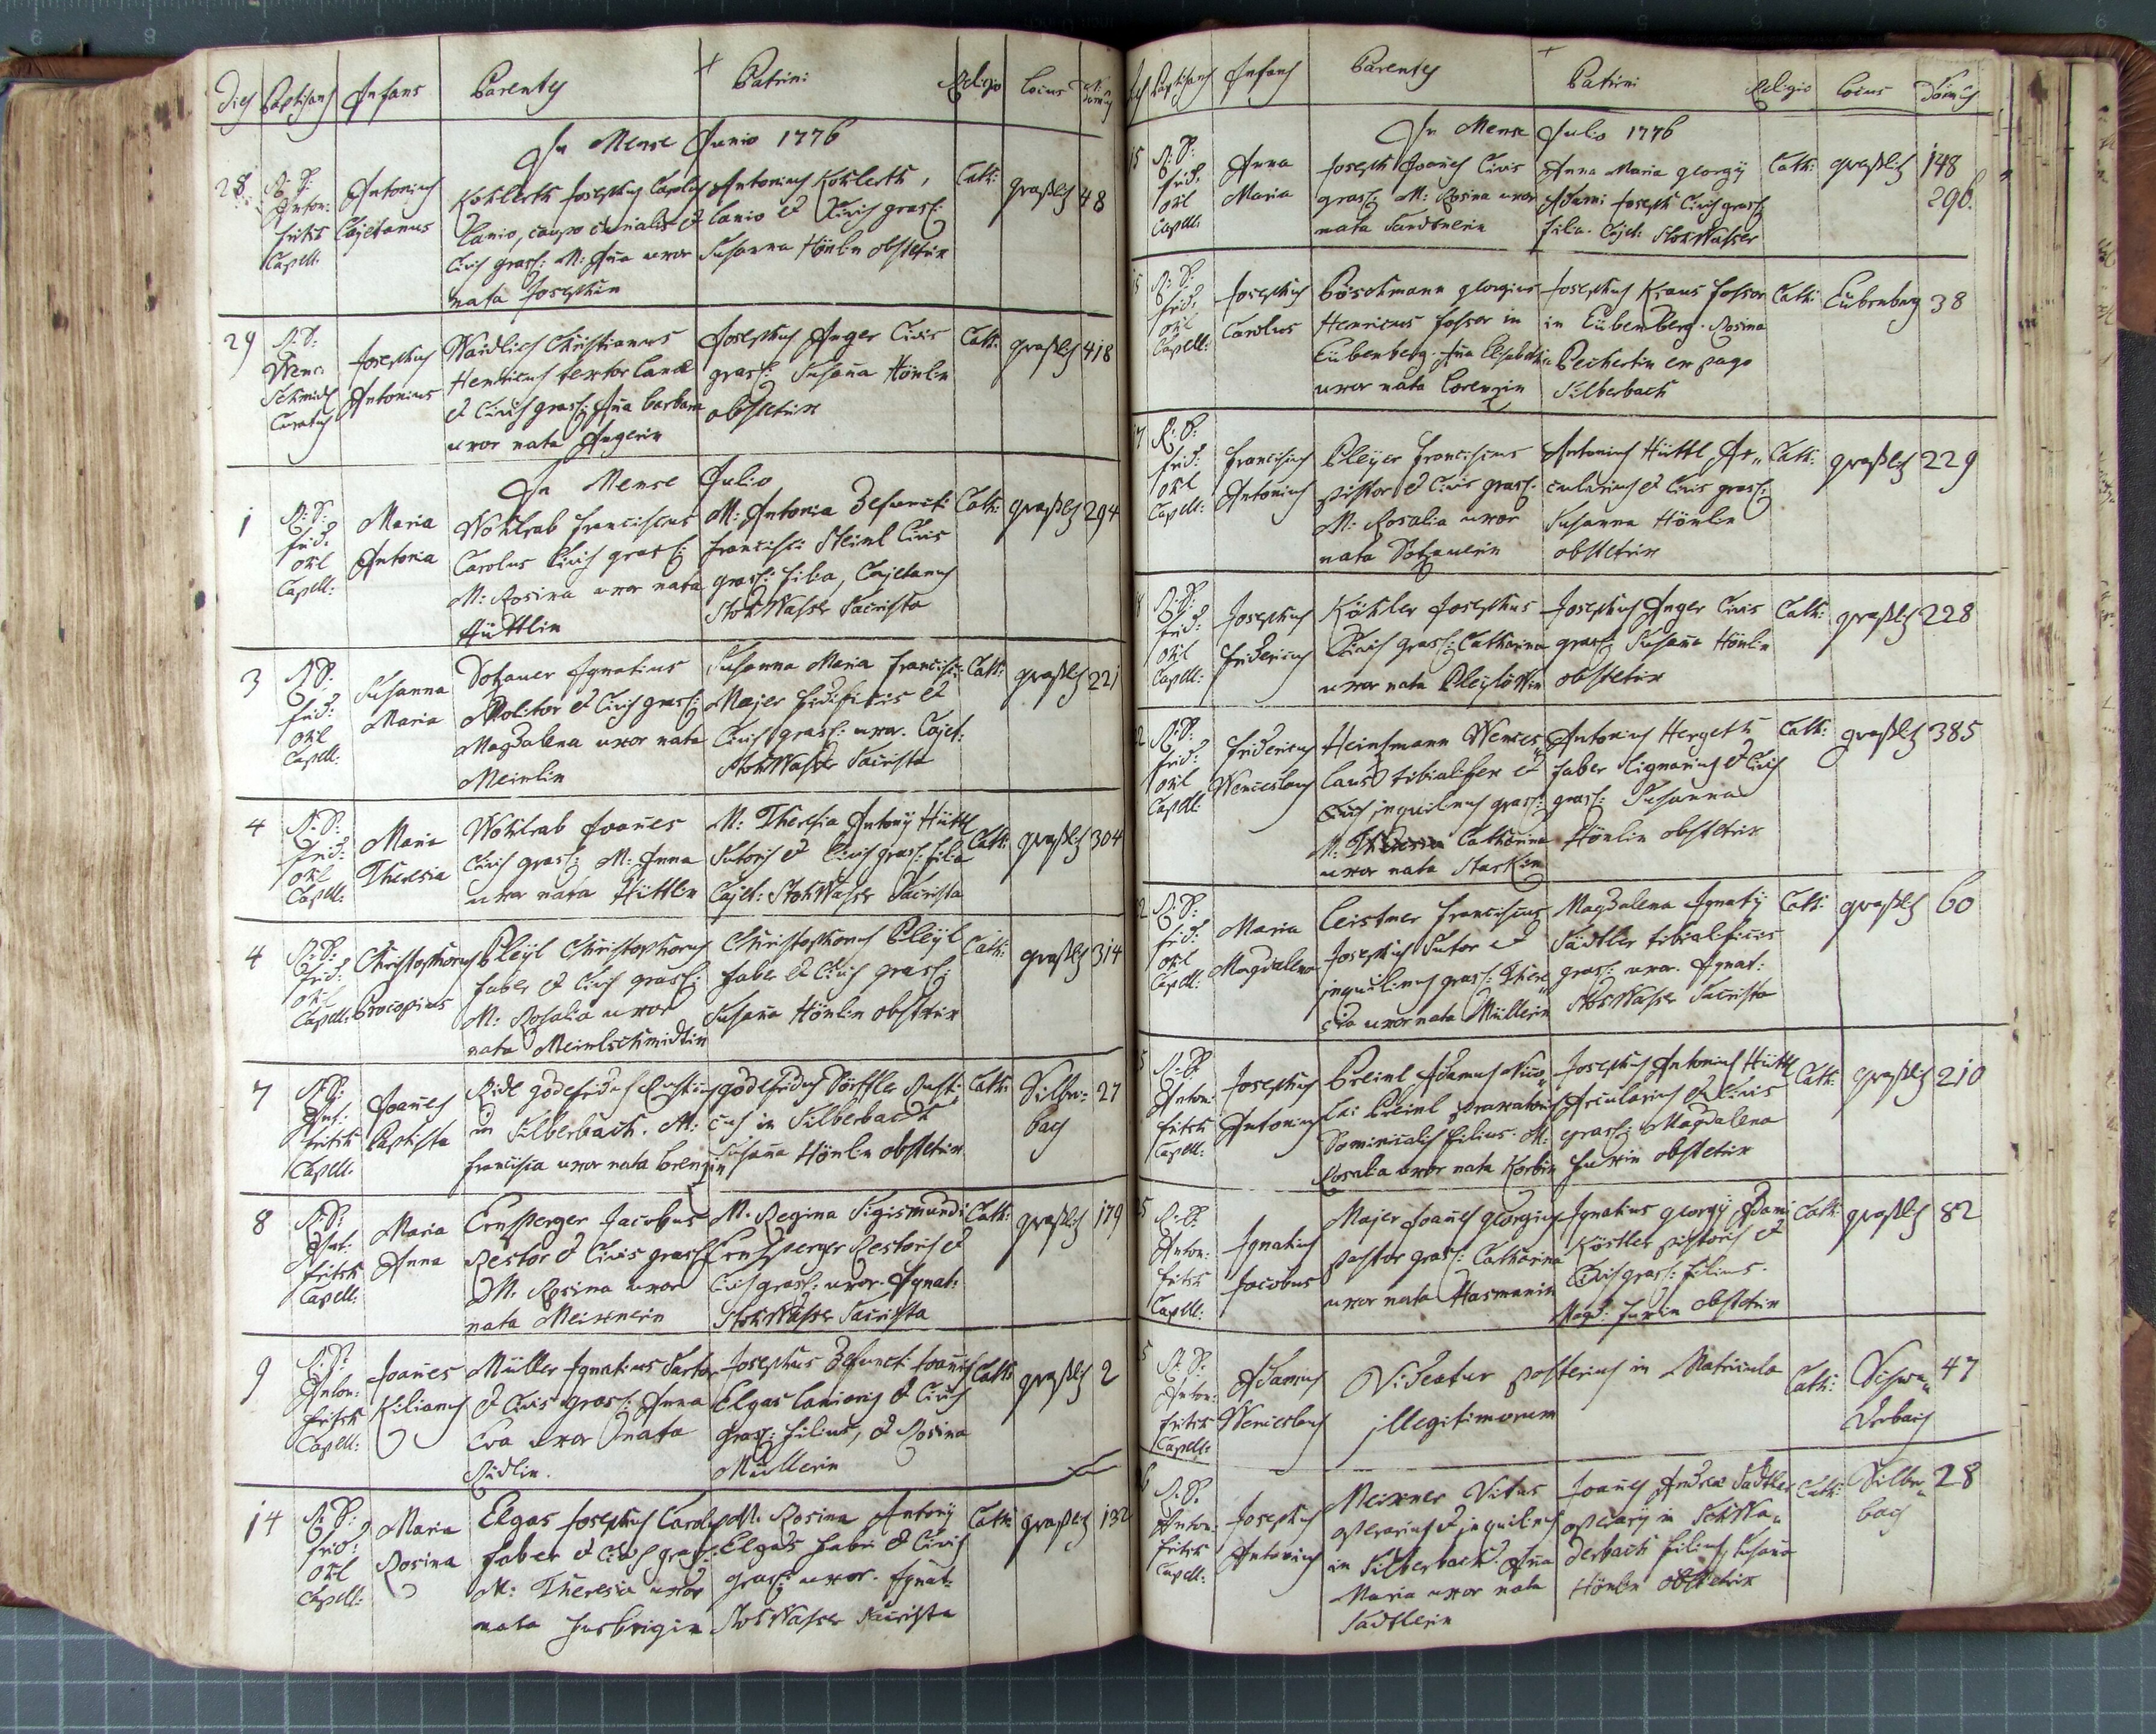 Dies Baptisans Infans Parentes Patrini Religio Locus N: Domus
In Mense Junio 1776
28. R: D: Antonius Kohlerth Josephus Carolus Antonius Kohlerth, Cath: Graßlz 48
Anton: Cajetanus Lanio, caupo et Lanio et Civis grasl:
Fritsch Civis grasl: M: Aña uxor Susanna Hönlin obstetrix
Capell: nata Josephin
29 R: D: Josephus Waidlich Christianus Josephus Anger Civis Cath: graßlz 418
Wenc: Antonius Henricus textor lanae grasl: Susaña Hönlin
Schmidt et Civis grasl: Aña Barbara obstetrix
Curatus uxor nata Angerin
In Mense Julio
1 R: D: Maria Wohlrab Franciscus M: Antonia defuncti Cath: graßlz 294
Frid: Antonia Carolus Civis grasl: Francisci Steinl Civis
Capell: M: Rosina uxor nata grasl: filia, Cajetanus
Hüttlin StokWasser Sacrista
3 R: D: Susanna Dotzauer Ignatius Susanna Maria Francisci Cath: graßlz 221
Frid: Maria Molitor et Civis grasl: Majer et
Capell: Magdalena uxor nata Civis grasl: uxor. Cajet:
Meinlin StokWasser Sacrista
4 R: D: Maria Wohlrab Joañes M: Theresia Antony Hüttl Cath: graßlz 304
Frid: Theresia Civis grasl: M: Anna Sutoris et Civis grasl: filia
Capell: uxor nata Hüttlin Cajet: StokWasser Sacrista
4 R: D: Christophorus Pleyl Christophorus Christophorus Pleyl Cath: graßlz 314
Frid: Procopius faber et Civis grasl: faber et Civis grasl:
Capell: M: Rosalia uxor Susaña Hönlin obstetrix
nata Meinlschmidtin
7 R: D: Joañes Ridl Godefridus Rusticus Godefridus Dörffler Rusti- Cath: Silber- 27
Ant: Baptista in Silberbach. M: cus in Silberbach bach
Fritsch Francisca uxor nata Lorenzin Susaña Hönlin obstetrix
Capell:
8 R: D: Maria Ernsperger Jacobus M. Regina Sigismundi Cath: graßlz 179
Ant: Anna Restor et Civis grasl: Ernsperger Restoris et
Fritsch M. Rosina uxor Civis grasl: uxor. Ignat:
Capell: nata Meixnerin StokWasser Sacrista
9 R: D: Joañes Müller Ignatius Sartor Josephus defuncti Joañis Cath: graßlz 2
Anton: Kilianus et Civis grasl: Anna Elgas Lanionis et Civis
Fritsch Eva uxor nata grasl: filius, et Rosina
Capell: Ridlin. Müllerin
14 R: D: Maria Elgas Josephus Carolus M. Rosina Antony Cath: graßlz 132
Frid: Rosina faber et Civis grasl: Elgas fabri et Civis
M: Theresia uxor grasl: uxor. Ignat:
Capell: nata StokWasser Sacrista
Dies Baptisans Infans Parentes Patrini Religio Locus Domus
In Mense Julio 1776
15 R: D: Anna Joseph Joañes Civis Anna Maria Georgy Cath: graßlz 148
Frid: Maria grasl: M: Rosina uxor Adami Joseph Civis grasl: 296.
Capell: nata Sandnerin filia. Cajet: StokWasser
15 R: D: Josephus Pöschmann Georgius Josephus Kraus fossor Cath: Eübenberg 38
Frid: Carolus Henricus fossor in in Eübenberg. Rosina
Capell: Eübenberg. Aña Elisabetha Pechertin ex pago
uxor nata Lorenzin Silberbach
17 R: D: Franciscus Pleyer Franciscus Antonius Hüttl Ar- Cath: graßlz 229
Frid: Antonius pistor et Civis grasl: cularius et Civis grasl:
Capell: M: Rosalia uxor Susanna Hönlin
nata Dotzauerin obstetrix
R: D: Josephus Köhler Josephus Josephus Anger Civis Cath: graßlz 228
Frid: Fridericus Civis grasl: Catharina grasl: Susaña Hönlin
Capell: uxor nata obstetrix
R: D: Fridericus Heinsmann Wences- Antonius Hergeth Cath: graßlz 385
Frid: Wenceslaus laus tibialifex et faber lignarius et Civis
Capell: inquilinus grasl: grasl: Susanna
M: Catharina Hönlin obstetrix
uxor nata Starkin
R: D: Maria Leistner Franciscus Magdalena Ignaty Cath: graßlz 60
Frid: Magdalena Josephus Sutor et Sädtler tibialificis
Capell: inquilinus grasl: There- grasl: uxor. Ignat:
sia uxor nata Müllerin StokWasser Sacrista
R: D: Josephus Breinl Adamus Nico- Josephus Antonius Hüttl Cath: graßlz 210
Anton: Antonius lai Breinl Arcularius et Civis
Fritsch Dominicalis filius. M: grasl: Magdalena
Capell: Rosalia uxor nata Korbin Fuxin obstetrix
R: D: Ignatius Majer Joañes Georgius Ignatius Georgy Adami Cath: graßlz 82
Anton: Jacobus pastor grasl: Catharina Köstler pistoris et
Fritsch uxor nata Hasmanin Civis grasl: filius.
Capell: Magd: Fuxin obstetrix
R: D: Adamus Videatur posterius in Matricula Cath: Schwa- 47
Anton: Wenceslaus illegitimorum derbach
Fritsch
Capell:
R: D: Josephus Meixner Vitus Joañes Andreae Sädtler Cath: Silber- 28
Anton: Antonius operarius et inquilinus operary in Schwa- bach
Fritsch in Silberbach. Aña derbach filius, Susaña
Capell: Maria uxor nata Hönlin obstetrix
Sädtlerin